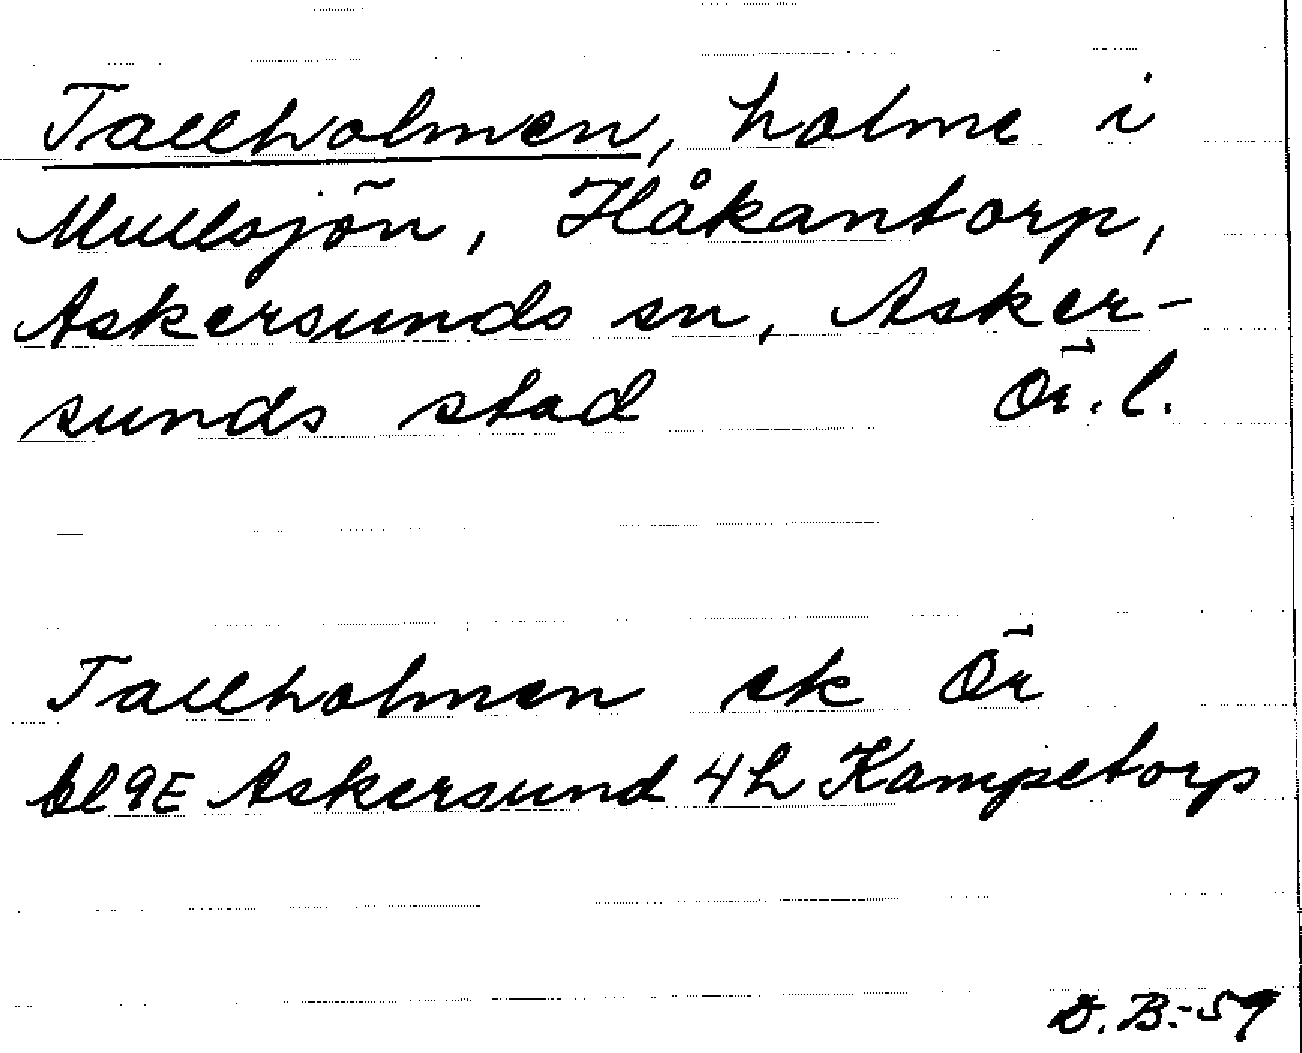 Tallholmen, holme i
Mullsjön, Håkantorp,
Askersunds sn, Asker-
sunds stad Ör. l.
Tallholmen ek Ör
bl 9E Askersund 4h Kampetorp
D. B.-59